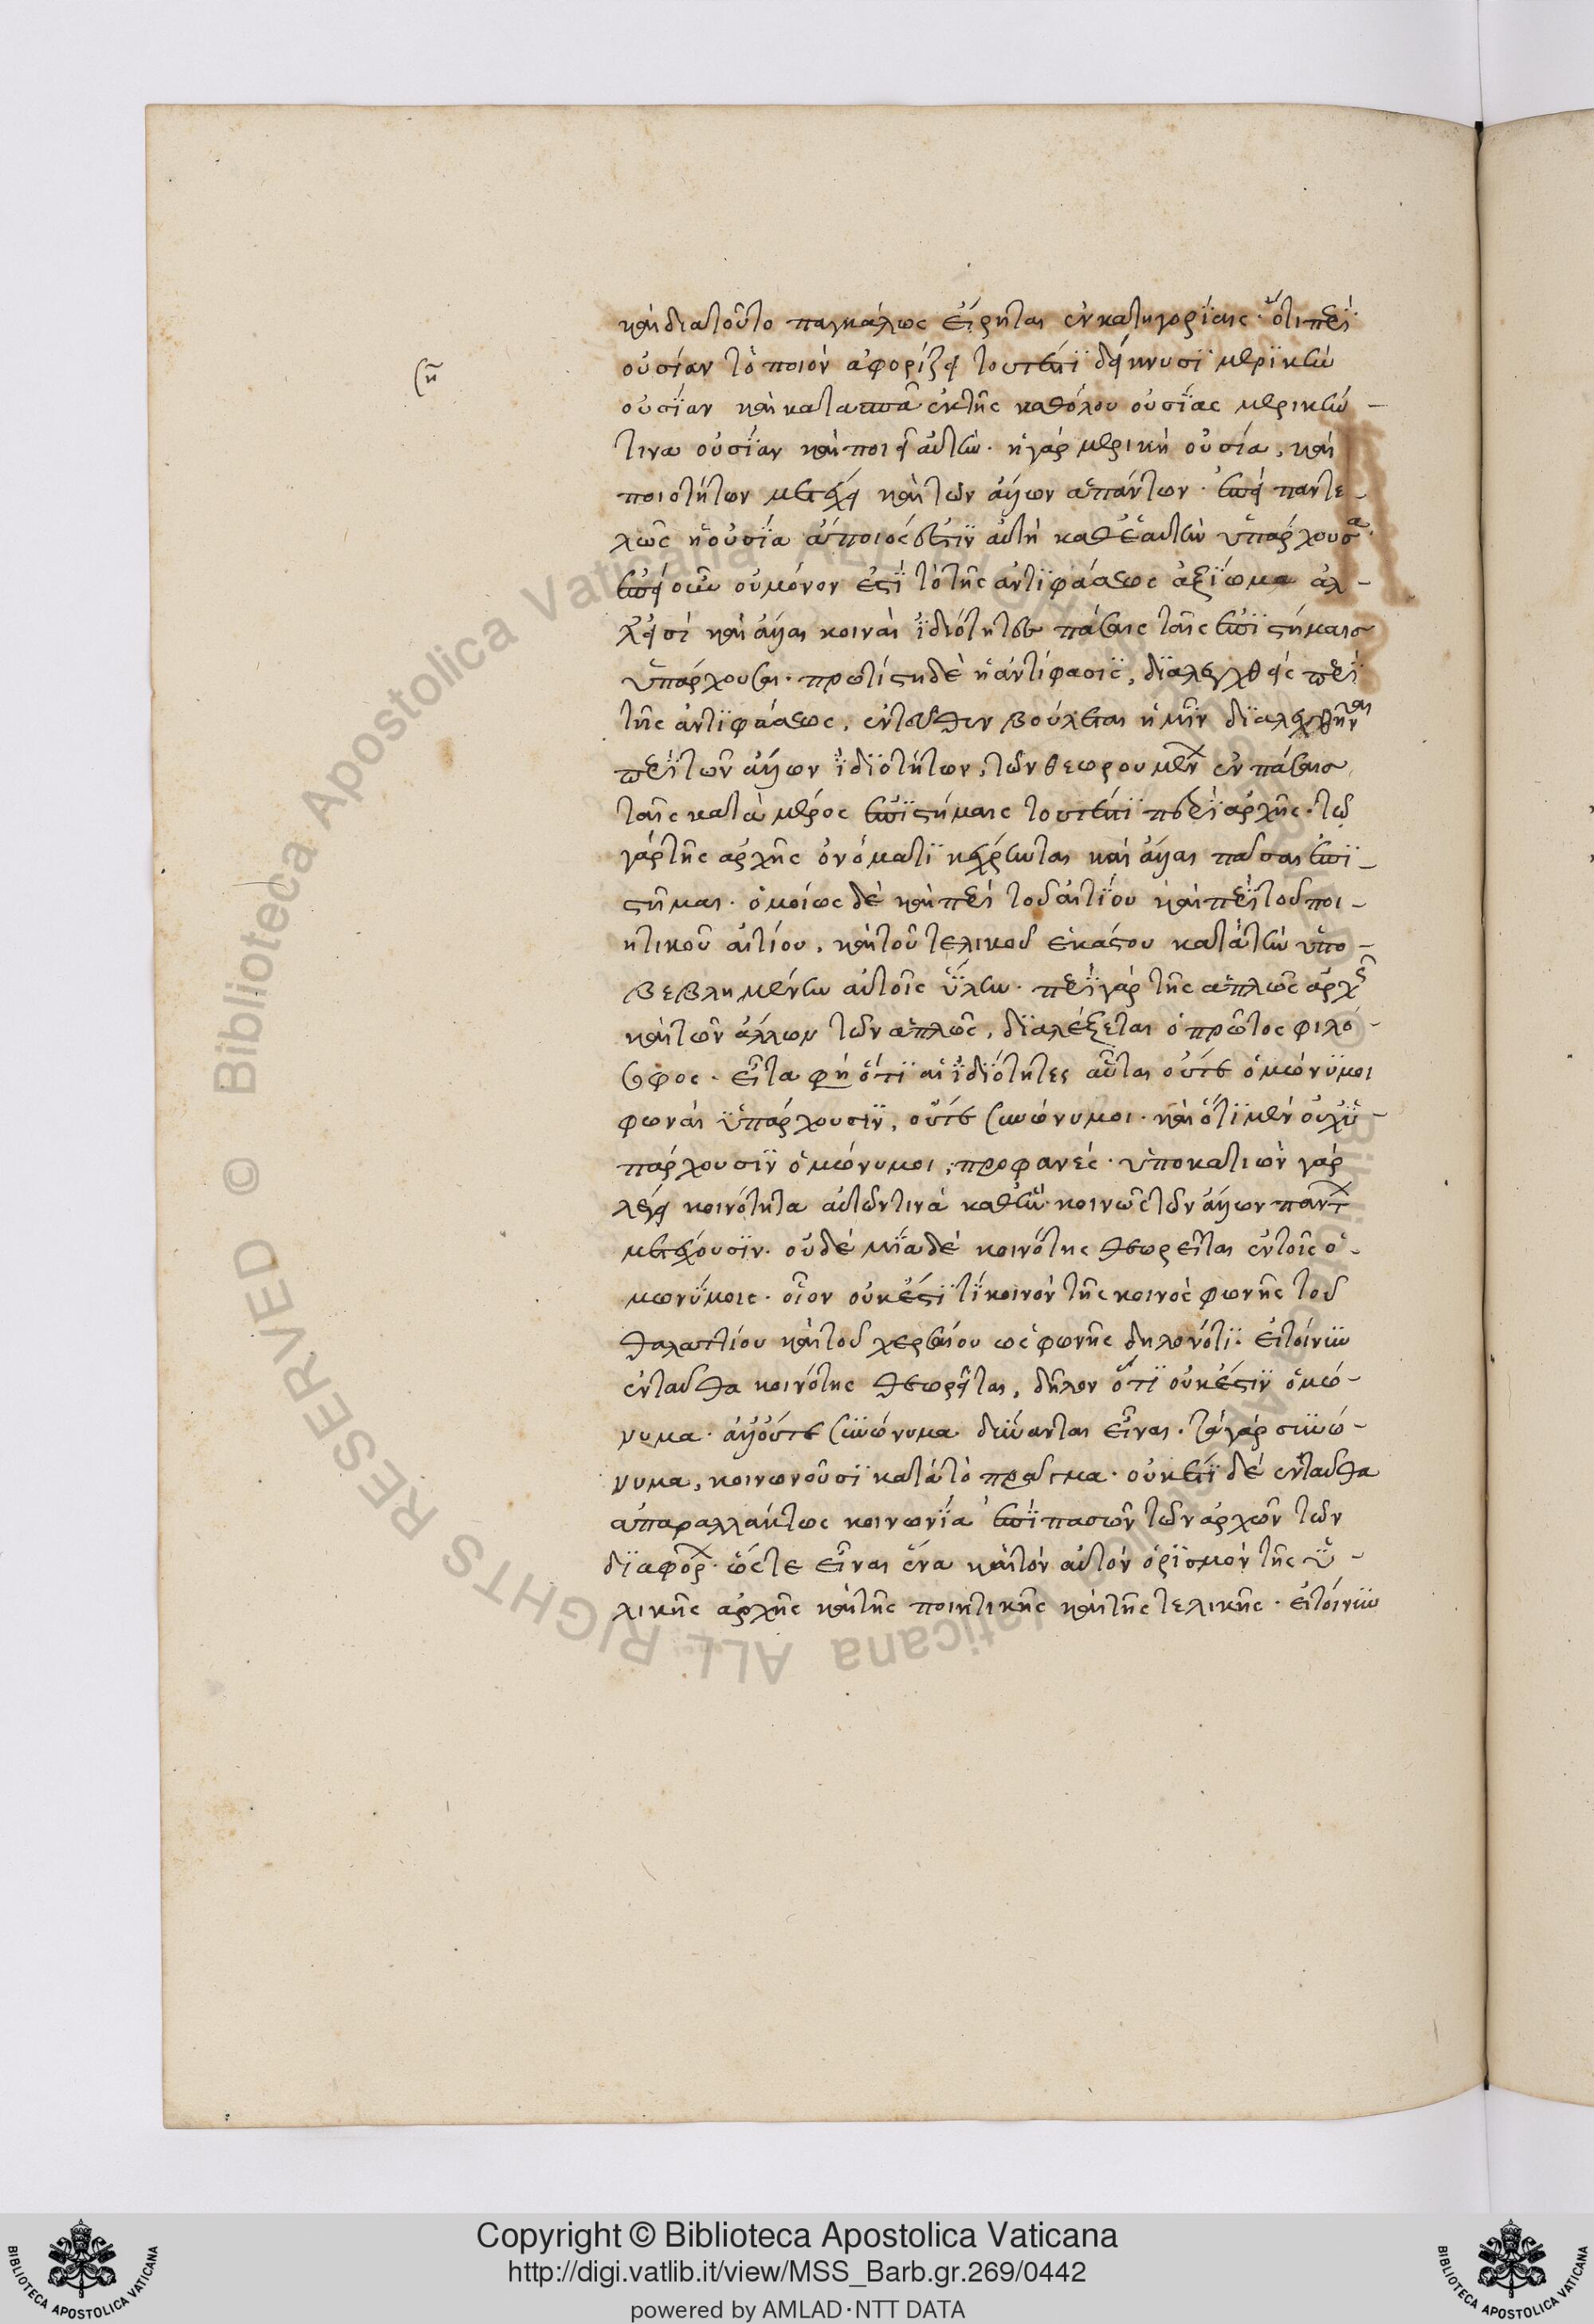 καὶ διατοῦτο παγκάλως εἴρηται ἐν κατηγορίαις· ὅτι περὶ
οὐσίαν τὸ ποιὸν ἀφορίζει τουτέστι δείκνυσι μερικὴν
οὐσίαν καὶ κατασπᾶ ἐκ τῆς καθόλου οὐσίας μερικήν
τινα οὐσίαν καὶ ποιεῖ αὐτὴν· ἡ γὰρ μερικὴ οὐσία, καὶ
ποιοτήτων μετέχει καὶ τῶν ἄλλων ἁπάντων· ἐπεὶ παντε-
λῶς ἡ οὐσία ἄποιός ἐστιν αὐτὴ καθ' ἑαυτὴν ὑπάρχουσα·
ἐπεὶ οὖν οὐ μόνον ἐστὶ τὸ τῆς ἀντιφάσεως ἀξίωμα ἀλ-
λ' εἰσὶ καὶ ἄλλαι κοιναὶ ἰδιότητες πάσαις ταῖς ἐπιστήμαις
ὑπάρχουσαι· πρωτίστη δὲ ἡ ἀντίφασις, διαλεχθεὶς περὶ
τῆς ἀντιφάσεως, ἐντεῦθεν βούλεται ἡμῖν διαλεχθῆναι
περὶ τῶν ἄλλων ἰδιοτήτων, τῶν θεωρουμένων ἐν πάσαις
ταῖς κατὰ μέρος ἐπιστήμαις τουτέστι περὶ ἀρχῆς· τῷ
γὰρ τῆς ἀρχῆς ὀνόματι κέχρηνται καὶ ἄλλαι πᾶσαι ἐπι-
στῆμαι· ὁμοίως δὲ καὶ περὶ τοῦ αἰτίου καὶ περὶ τοῦ ποι-
ητικοῦ αἰτίου, καὶ τοῦ τελικοῦ ἑκάστου κατὰ τὴν ὑπο-
βεβλημένην αὐτοῖς ὕλην· περὶ γὰρ τῆς ἁπλῶς ἀρχῆς
καὶ τῶν ἄλλων τῶν ἁπλῶς, διαλέξεται ὁ πρῶτος φιλό-
σοφος· εἶτα φὴ ὅτι αἱ ἰδιότητες αὗται οὔτε ὁμώνυμοι
φωναὶ ὑπάρχουσιν, οὔτε συνώνυμοι· καὶ ὅτι μὲν οὐχ ὑ-
πάρχουσιν ὁμώνυμοι, προφανές· ὑποκατιὼν γὰρ
λέγει κοινότητα αὐτῶν τινὰ καθ' ἣν κοινῶς τῶν ἄλλων πάντων
μετέχουσιν· οὐδὲ μία δὲ κοινότης θεωρεῖται ἐν τοῖς ὁ-
μωνύμοις· οἷον οὐκ ἔστι τί κοινὸν τῆς κοινὸς φωνῆς τοῦ
θαλαττίου καὶ τοῦ χερσαίου ὡς φωνῆς δηλονότι· εἰ τοίνυν
ἐνταῦθα κοινότης θεωρεῖται, δῆλον ὅτι οὐκ ἔστιν ὁμώ-
νυμα· ἀλλ' οὔτε συνώνυμα δύνανται εἶναι· τὰ γὰρ συνώ-
νυμα, κοινωνοῦσι κατὰ τὸ πρᾶγμα· οὐκ ἔστι δὲ ἐνταῦθα
ἀπαραλλάκτως κοινωνία ἐπὶ πασῶν τῶν ἀρχῶν τῶν
διαφόρων· ὥστε εἶναι ἕνα καὶ τὸν αὐτὸν ὁρισμὸν τῆς ὑ-
λικῆς ἀρχῆς καὶ τῆς ποιητικῆς καὶ τῆς τελικῆς· εἰ τοίνυν
Copyright © Biblioteca Apostolica Vaticana
http://digi.vatlib.it/view/MSS_Barb.gr.269/0442
powered by AMLAD·NTT DATA
BIBLIOTECA APOSTOLICA VATICANA
BIBLIOTECA APOSTOLICA VATICANA
© Biblioteca Apostolica Vaticana ALL RIGHTS RESERVED